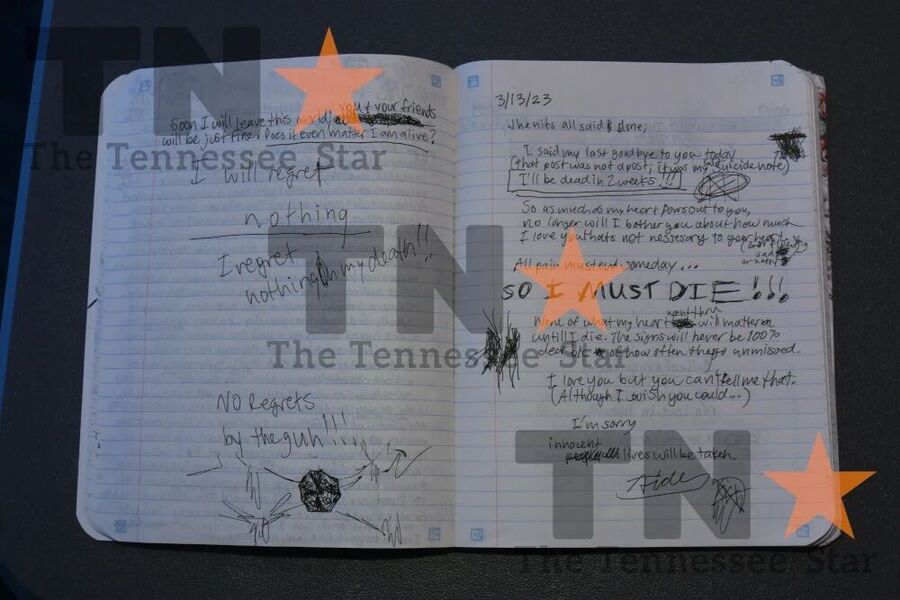 Soon I will leave this world; you & your friends
will be just fine. Does it even matter I am alive?
I will regret
nothing
I regret
nothing in my death!!
NO Regrets
by the gun!!!!
3/13/23
When its all said & done;
I said my last goodbye to you today
(that post was not a post; it was my suicide note)
I'll be dead in 2 weeks!!!
So as much as my heart pours out to you,
no longer will I bother you about how much
I love you thats not nessesary to your heart.
sad
or happy
All pain must end someday...
SO I MUST DIE!!!
None of what my heart went thru will matter
untill I die. The signs will never be 100%
clear b/c of how often they unmissed.
I love you but you can't tell me that.
(Although I wish you could...)
I'm sorry
innocent
lives will be taken.
Aiden
TN
The Tennessee Star
TN
The Tennessee Star
TN
The Tennessee Star